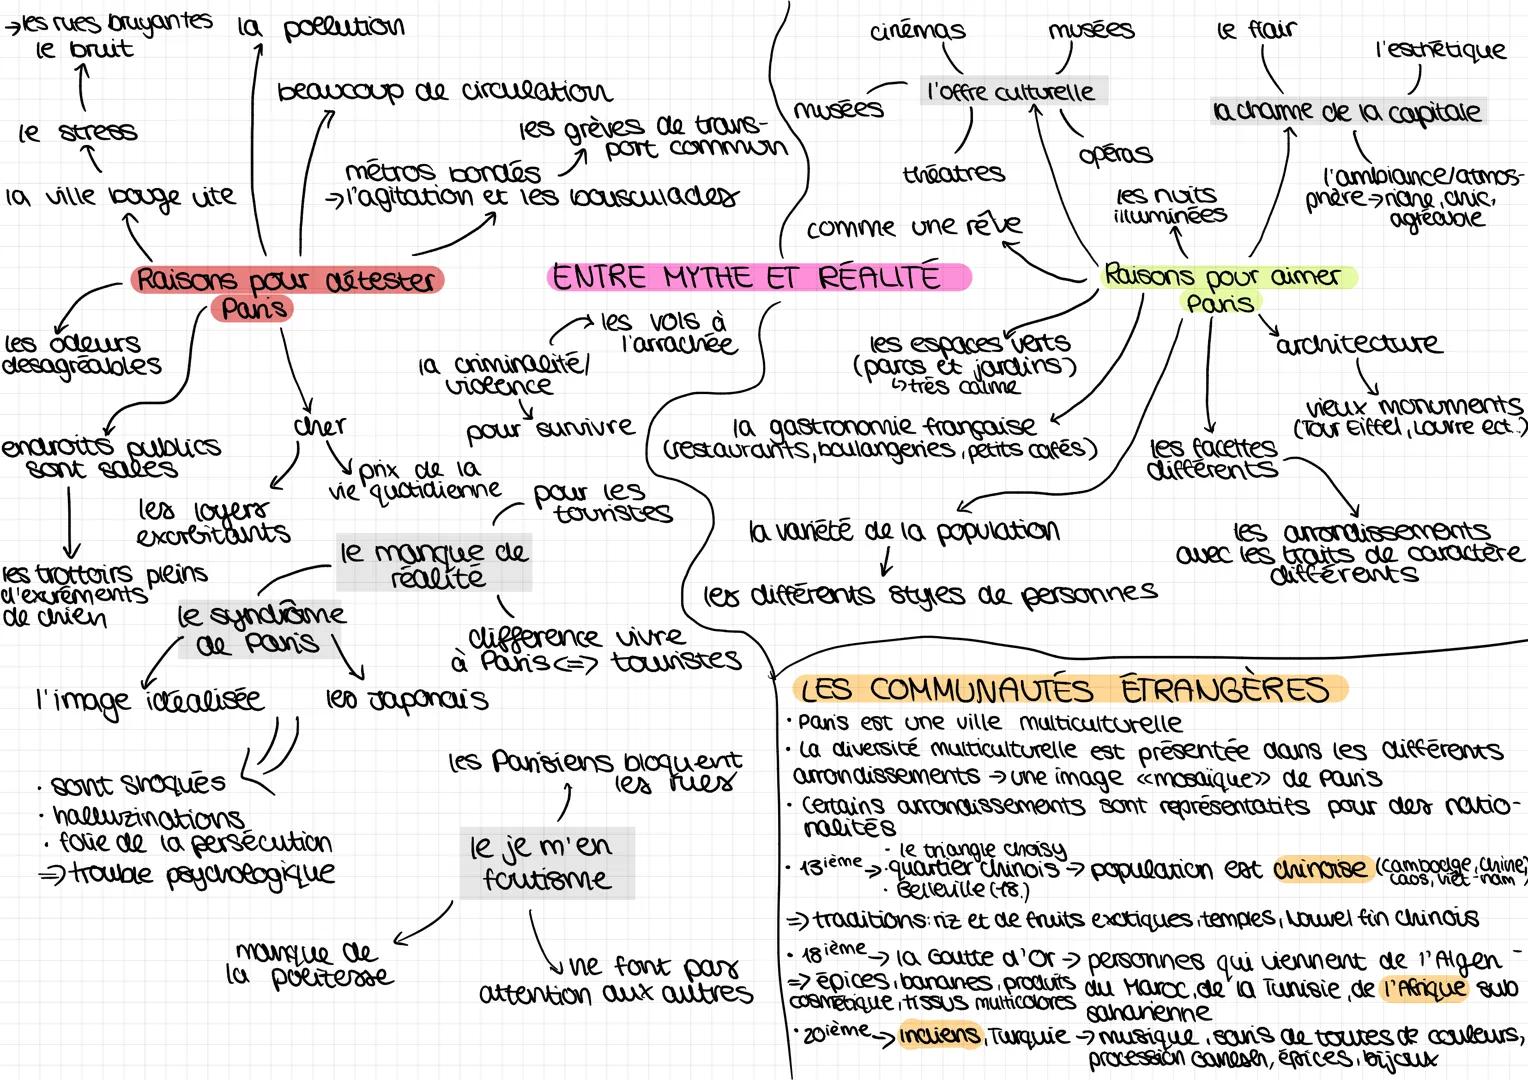 →les rues bruyantes
le bruit
la pollution
beaucoup de circulation
le stress
les grèves de trans-
port commun
métros bordés
→l'agitation et les bousculades
la ville bouge vite
Raisons pour détester
Paris
les odeurs
désagréables
endroits publics
sont sales
les trottoirs pleins
d'exréments
de chien
cher
les loyers
exorbitants
prix de la
vie quotidienne
la criminalité/
violence
les vols à
l'arrachée
pour survivre
le manque de
réalité
pour les
touristes
différence vivre
à Paris <=> touristes
le syndrôme
de Paris
l'image idéalisée
les Japonais
· sont shoqués
· halluzinations
· folie de la persécution
=> trouble psychologique
le je m'en
foutisme
les Parisiens bloquent
les rues
manque de
la politesse
ne font pas
attention aux autres
ENTRE MYTHE ET RÉALITÉ
cinémas
musées
musées
l'offre culturelle
théatres
opéras
le flair
l'esthétique
la charme de la capitale
l'ambiance/atmos-
phère→riche, chic,
agréable
les nuits
illuminées
comme une rêve
Raisons pour aimer
Paris
les espaces verts
(parcs et jardins)
↳très calme
architecture
vieux monuments
(Tour Eiffel, Louvre ect.)
la gastronomie française
(restaurants, boulangeries, petits cafés)
les facettes
différents
les arrondissements
avec les traits de caractère
différents
la variété de la population
les différents styles de personnes
LES COMMUNAUTÉS ÉTRANGÈRES
· Paris est une ville multiculturelle
· La diversité multiculturelle est présentée dans les différents
arrondissements → une image «mosaïque» de Paris
· Certains arrondissements sont représentatifs pour des natio-
nalités
· le triangle choisy
· 13ième → · quartier chinois → population est chinoise (Cambodge, Chine,
Laos, Viet-nam)
· Belleville (18.)
=> traditions: riz et de fruits exotiques, temples, Nouvel fin chinois
· 18ième → la Goutte d'Or → personnes qui viennent de l'Algen-
=> épices, bananes, produits du Maroc, de la Tunisie, de l'Afrique sub
cosmétique, tissus multicolores saharienne
· 20ième → indiens, Turquie → musique, saris de toutes de couleurs,
procession Ganesh, épices, bijoux